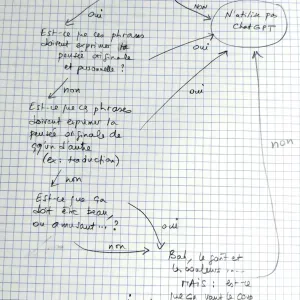 oui
NON
N'utilise pas
ChatGPT
Est-ce que ces phrases
doivent exprimer ta
pensée originale
et personnelle ?
oui
non
Est-ce que ces phrases
doivent exprimer la
pensée originale de
qq'un d'autre
(ex: traduction)
oui
non
non
Est-ce que ça
doit être beau,
ou amusant... ?
oui
non
Bah, le goût et
les couleurs ....
MAIS : est-ce
que ça vaut le